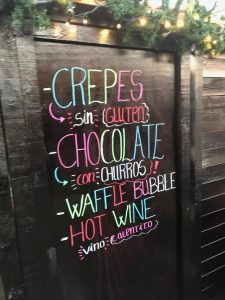 -CREPES
sin (GLUTEN)
-CHOCOLATE
con CHURROS)!
-WAFFLE BUBBLE
-HOT WINE
vino CALENTITO